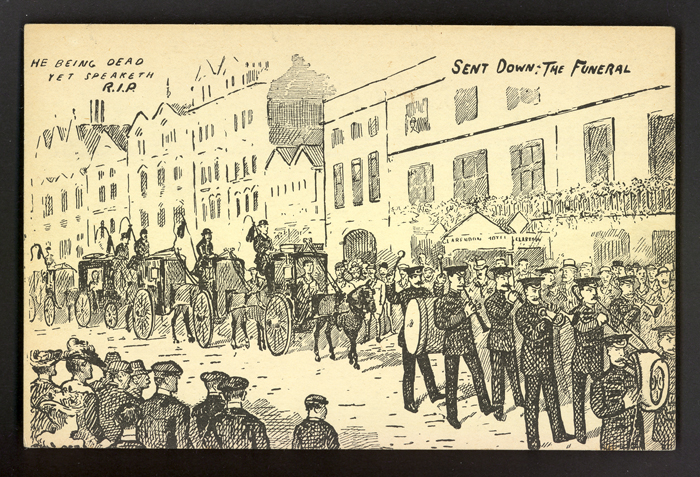 HE BEING DEAD
YET SPEAKETH
R.I.P.
SENT DOWN:-THE FUNERAL
CLARENDON HOTEL CLARENDON